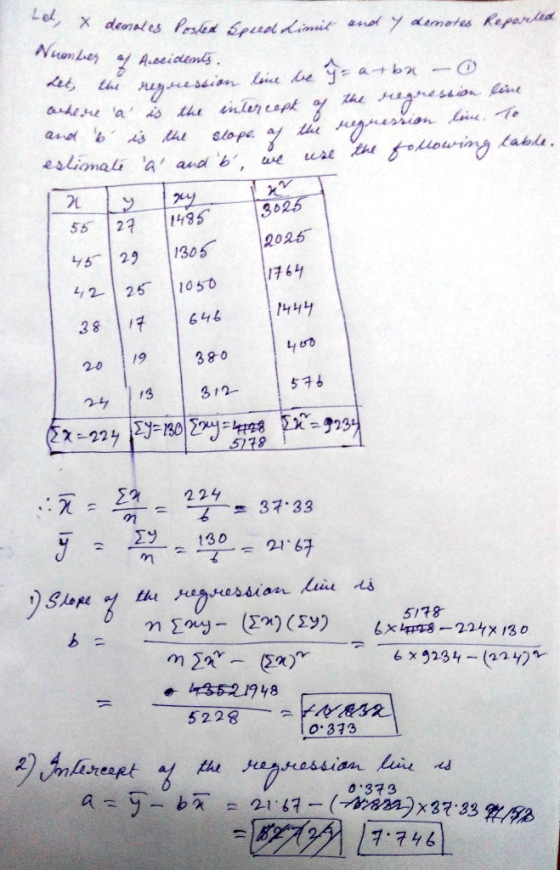 Let, X denotes Posted Speed Limit and Y denotes Reported
Number of Accidents.
Let, the regression line be ŷ = a + bx — ①
where 'a' is the intercept of the regression line
and 'b' is the slope of the regression line. To
estimate 'a' and 'b', we use the following table.
x y xy x²
55 27 1485 3025
45 29 1305 2025
42 25 1050 1764
38 17 646 1444
20 19 380 400
24 13 312 576
Σx = 224 Σy = 130 Σxy = 4128 5178 Σx² = 9234
∴ x̄ = Σx/n = 224/6 = 37.33
ȳ = Σy/n = 130/6 = 21.67
1) Slope of the regression line is
b = (n Σxy − (Σx)(Σy)) / (n Σx² − (Σx)²) = (6 × 4128 5178 − 224 × 130) / (6 × 9234 − (224)²)
= 4352 1948 / 5228 = 0.373
2) Intercept of the regression line is
a = ȳ − b x̄ = 21.67 − (0.373) × 37.33
= 7.746